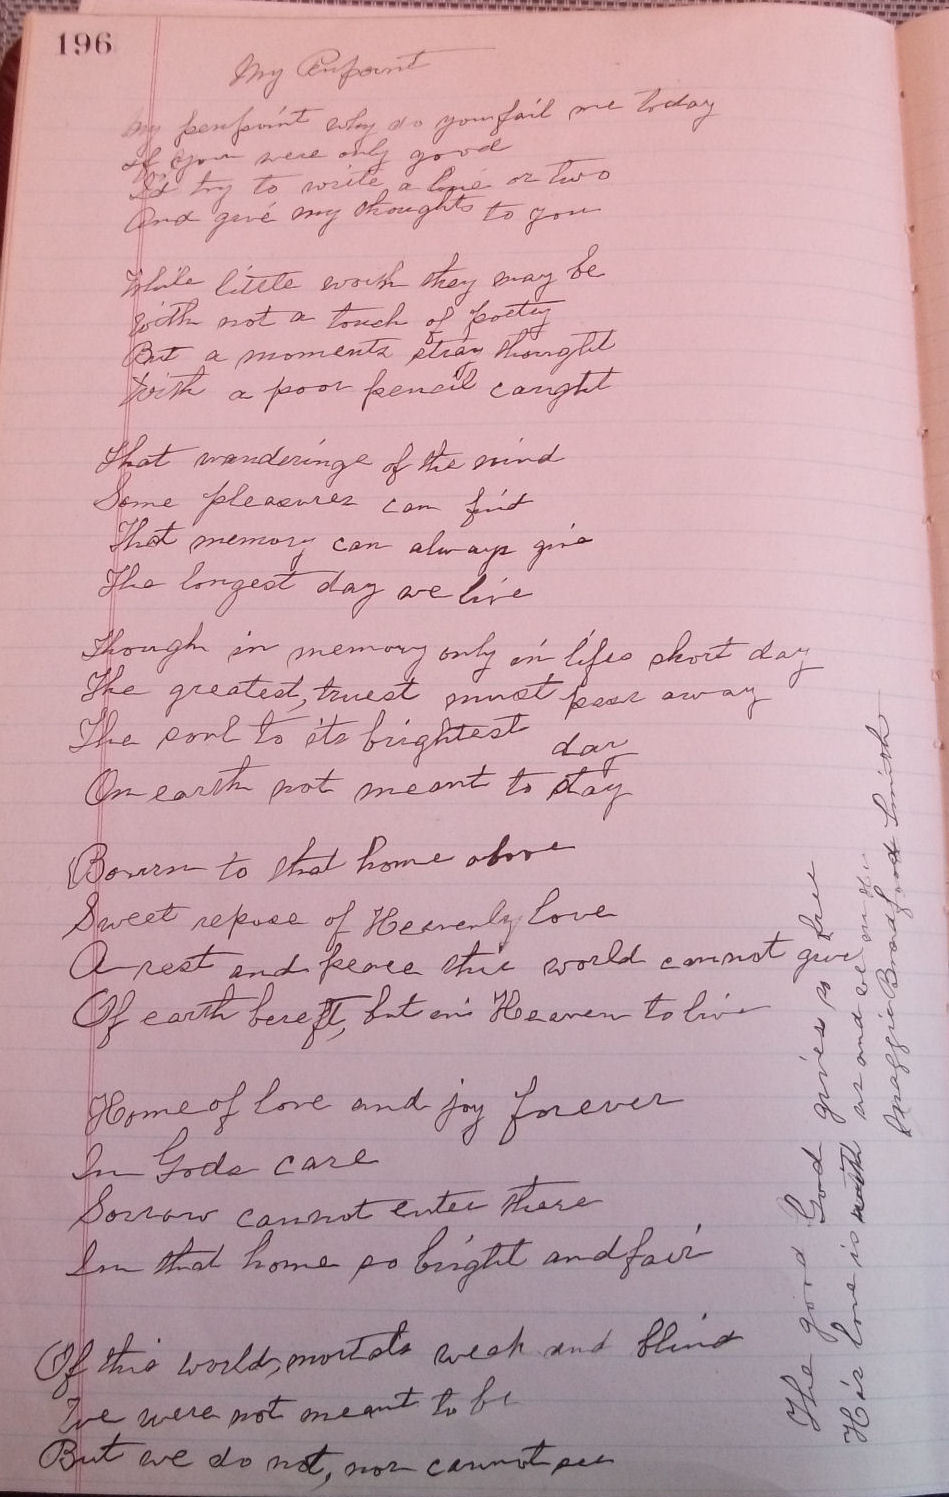 196
My Penpoint
My penpoint why do you fail me today
If you were only good
I'd try to write a line or two
And give my thoughts to you
While little worth they may be
With not a touch of poetry
But a moments stray thought
With a poor pencil caught
That wanderings of the mind
Some pleasures can find
That memory can always give
The longest day we live
Though in memory only in lifes short day
The greatest, truest must pass away
The soul to its brightest day
On earth not meant to stay
Bourn to that home above
Sweet repose of Heavenly love
A rest and peace this world cannot give
Of earth bereft, but in Heaven to live
Home of love and joy forever
In Gods care
Sorrow cannot enter there
In that home so bright and fair
Of this world, mortals weak and blind
We were not meant to be
But we do not, nor cannot see
The good God gives so free
His love is with us and we in His
Maggie Bradford Smith